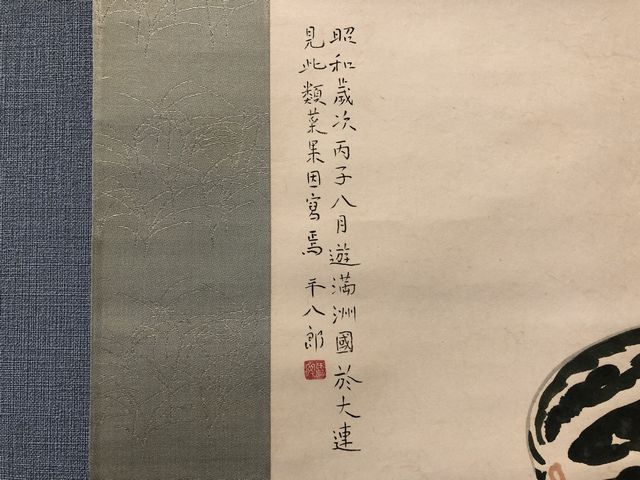 昭和歲次丙子八月遊滿洲國於大連
見此類菜果因寫焉 平八郎